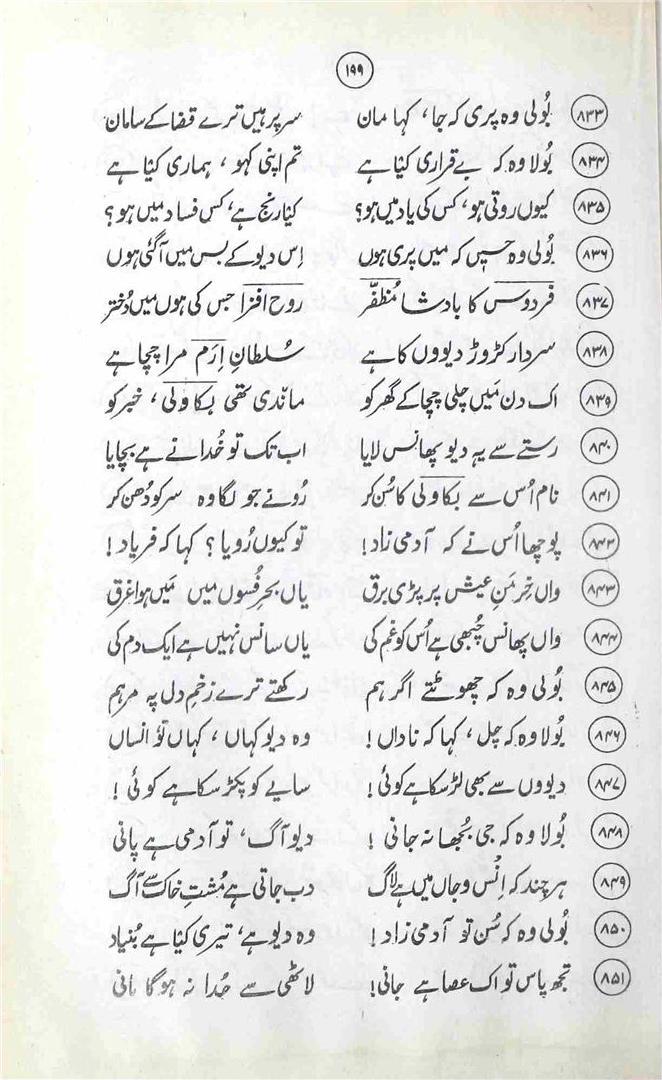 ۱۹۹
۸۳۳ بُولی وہ پری کہ جا، کہا مان سر پر ہیں ترے قضا کے سامان
۸۳۴ بُولا وہ کہ بے قراری کیٔا ہے تم اپنی کہو، ہماری کیٔا ہے
۸۳۵ کیوں روتی ہو، کس کی یاد میں ہو؟ کیٔا رنج ہے، کس فساد میں ہو؟
۸۳۶ بُولی وہ حسیں کہ میں پری ہوں اِس دیو کے بس میں آ گئی ہوں
۸۳۷ فردوس کا بادشا مُظفّر روح افزا جس کی ہوں میں دُختر
۸۳۸ سردار کڑوڑ دیووں کا ہے سُلطانِ اِرَم مرا چچا ہے
۸۳۹ اک دن مَیں چلی چچا کے گھر کو ماندی تھی بکاولی، خبر کو
۸۴۰ رستے سے یہ دیو پھانس لایا اب تک تو خُدا نے ہے بچایا
۸۴۱ نام اُس سے بکاولی کا سُن کر رُونے جو لگا وہ سر کو دُھن کر
۸۴۲ پوچھا اُس نے کہ آدمی زاد! تو کیوں رُویا؟ کہا کہ فریاد!
۸۴۳ واں خِرمَنِ عیش پر پڑی برق یاں بحرِ فُسوں میں مَیں ہوا غرق
۸۴۴ واں پھانس چُبھی ہے اُس کو غم کی یاں سانس نہیں ہے ایک دم کی
۸۴۵ بُولی وہ کہ چھوٹتے اگر ہم رکھتے ترے زخمِ دل پہ مرہم
۸۴۶ بُولا وہ کہ چل، کہا کہ ناداں! وہ دیو کہاں، کہاں تؤ انساں
۸۴۷ دیووں سے بھی لڑ سکا ہے کوئی! سایے کو پکڑ سکا ہے کوئی!
۸۴۸ بُولا وہ کہ جی بُجھا نہ جانی! دیو آگ، تو آدمی ہے پانی
۸۴۹ ہر چند کہ اِنس و جاں میں ہے لاگ دب جاتی ہے مُشتِ خاک سے آگ
۸۵۰ بُولی وہ کہ سُن تو آدمی زاد! وہ دیو ہے، تیری کیٔا ہے بُنیاد
۸۵۱ تجھ پاس تو اک عصا ہے جانی! لاٹھی سے جُدا نہ ہوگا پانی